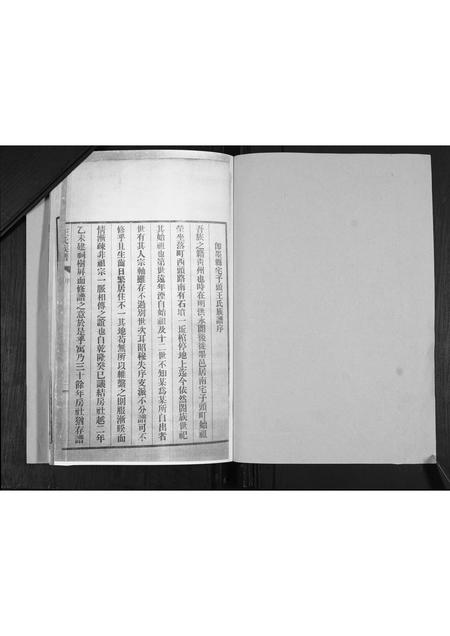 即墨縣宅子頭王氏族譜序
吾族之籍青州也時在明洪永間後徙墨邑居南宅子頭町始祖
塋坐落町西頭路南有石墳一坵棺停地上迄今依然閤族世祀
其始祖也第世遠年湮自始祖及十二世不知某爲某所自出者
世有其人宗軸雖存不過別世次耳昭穆失序支派不分譜可不
修乎且生齒日繁居住不一其地苟無所以維繫之則服漸盡而
情漸疎非祖宗一脈相傳之誼也自乾隆癸巳議結房社越二年
乙未建祠樹屏而修譜之意於是乎寓乃三十餘年房社猶存譜
氏族譜